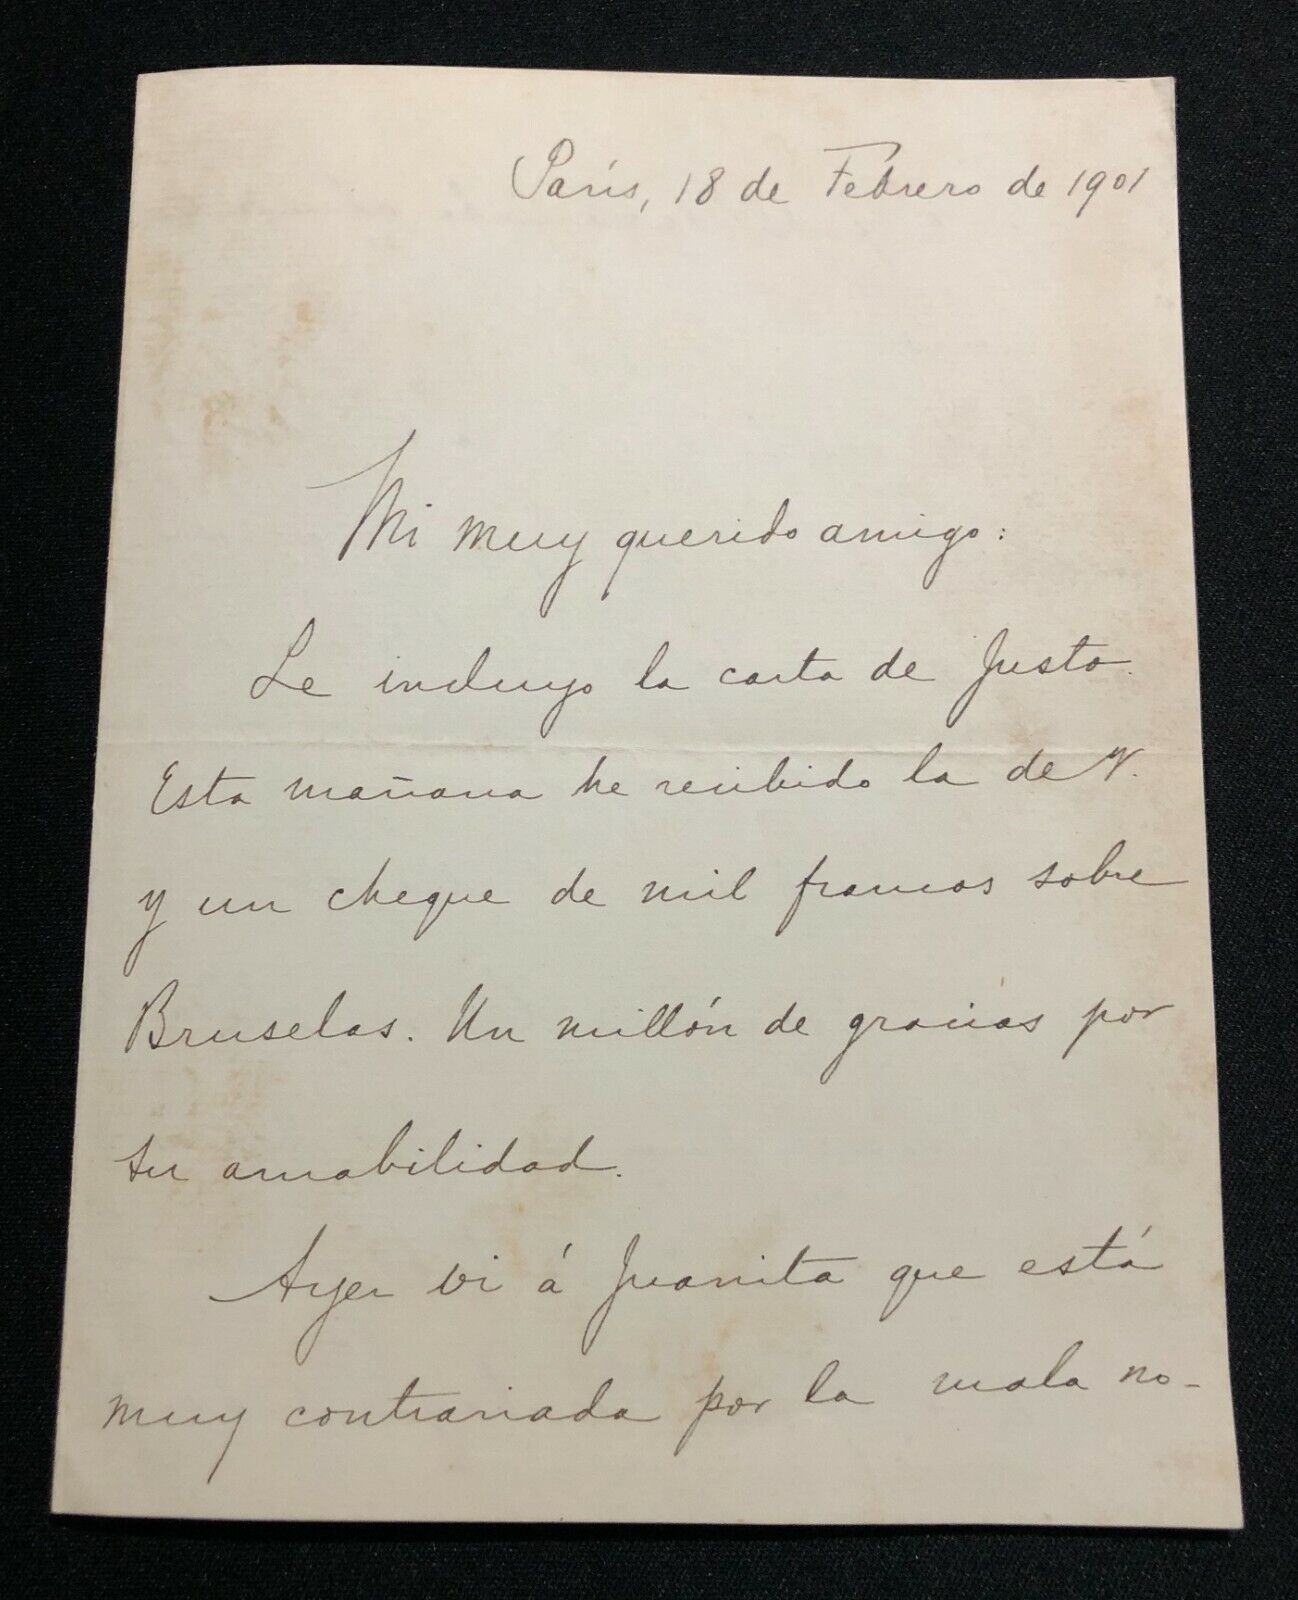 París, 18 de Febrero de 1901
Mi muy querido amigo:
Le incluyo la carta de Justo.
Esta mañana he recibido la de V.
y un cheque de mil francos sobre
Bruselas. Un millón de gracias por
su amabilidad.
Ayer vi á Juanita que está
muy contrariada por la mala no-